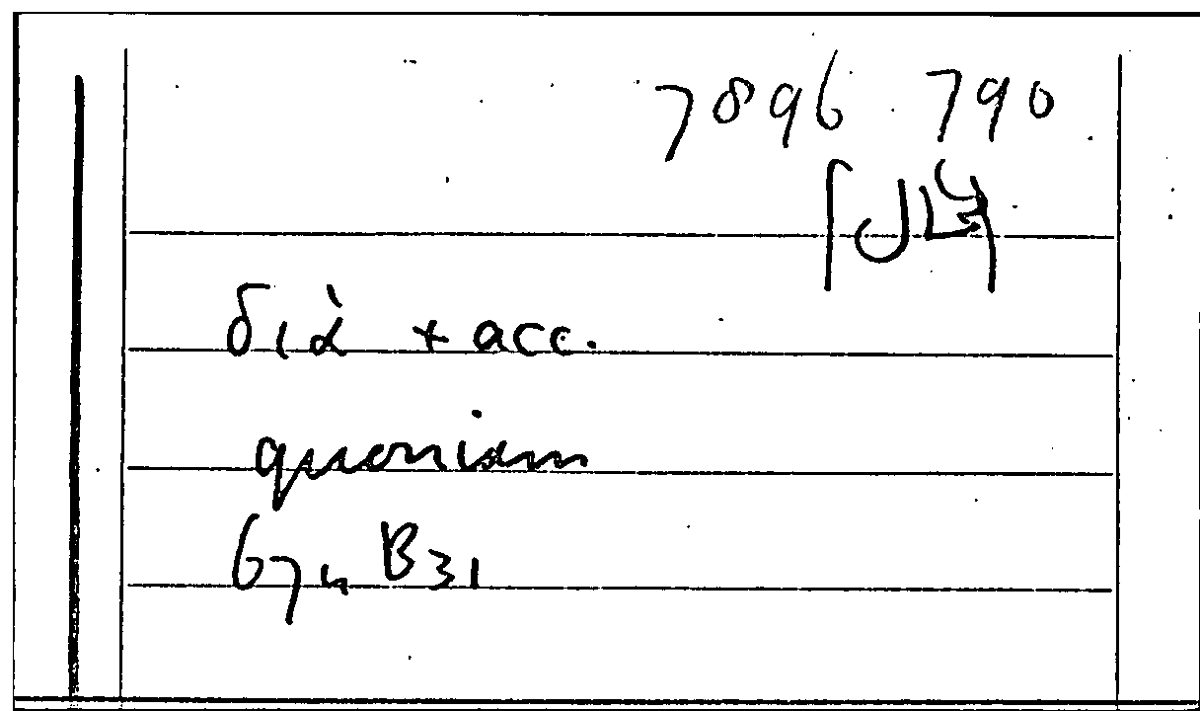 7896 790
διὰ + acc.
quoniam
67n B31